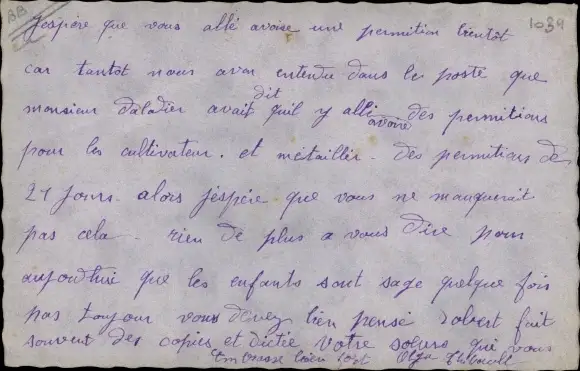 BB
1039
J'espère que vous allé avoire une permition bientôt
car tantôt nous avon entendu dans les poste que
monsieur Daladier avait dit quil y allé avoire des permitions
pour les cultivateur. et métaillér. des permitions de
21 jours. alors j'éspére que vous ne manquerait
pas cela. rien de plus a vous dire pour
aujourd'hui que les enfants sont sage quelque fois
pas toujour vous devez bien pensé Robert fait
souvent des copies et dictée votre soeurs qui vous
embrasse bien fort Olga Thibault